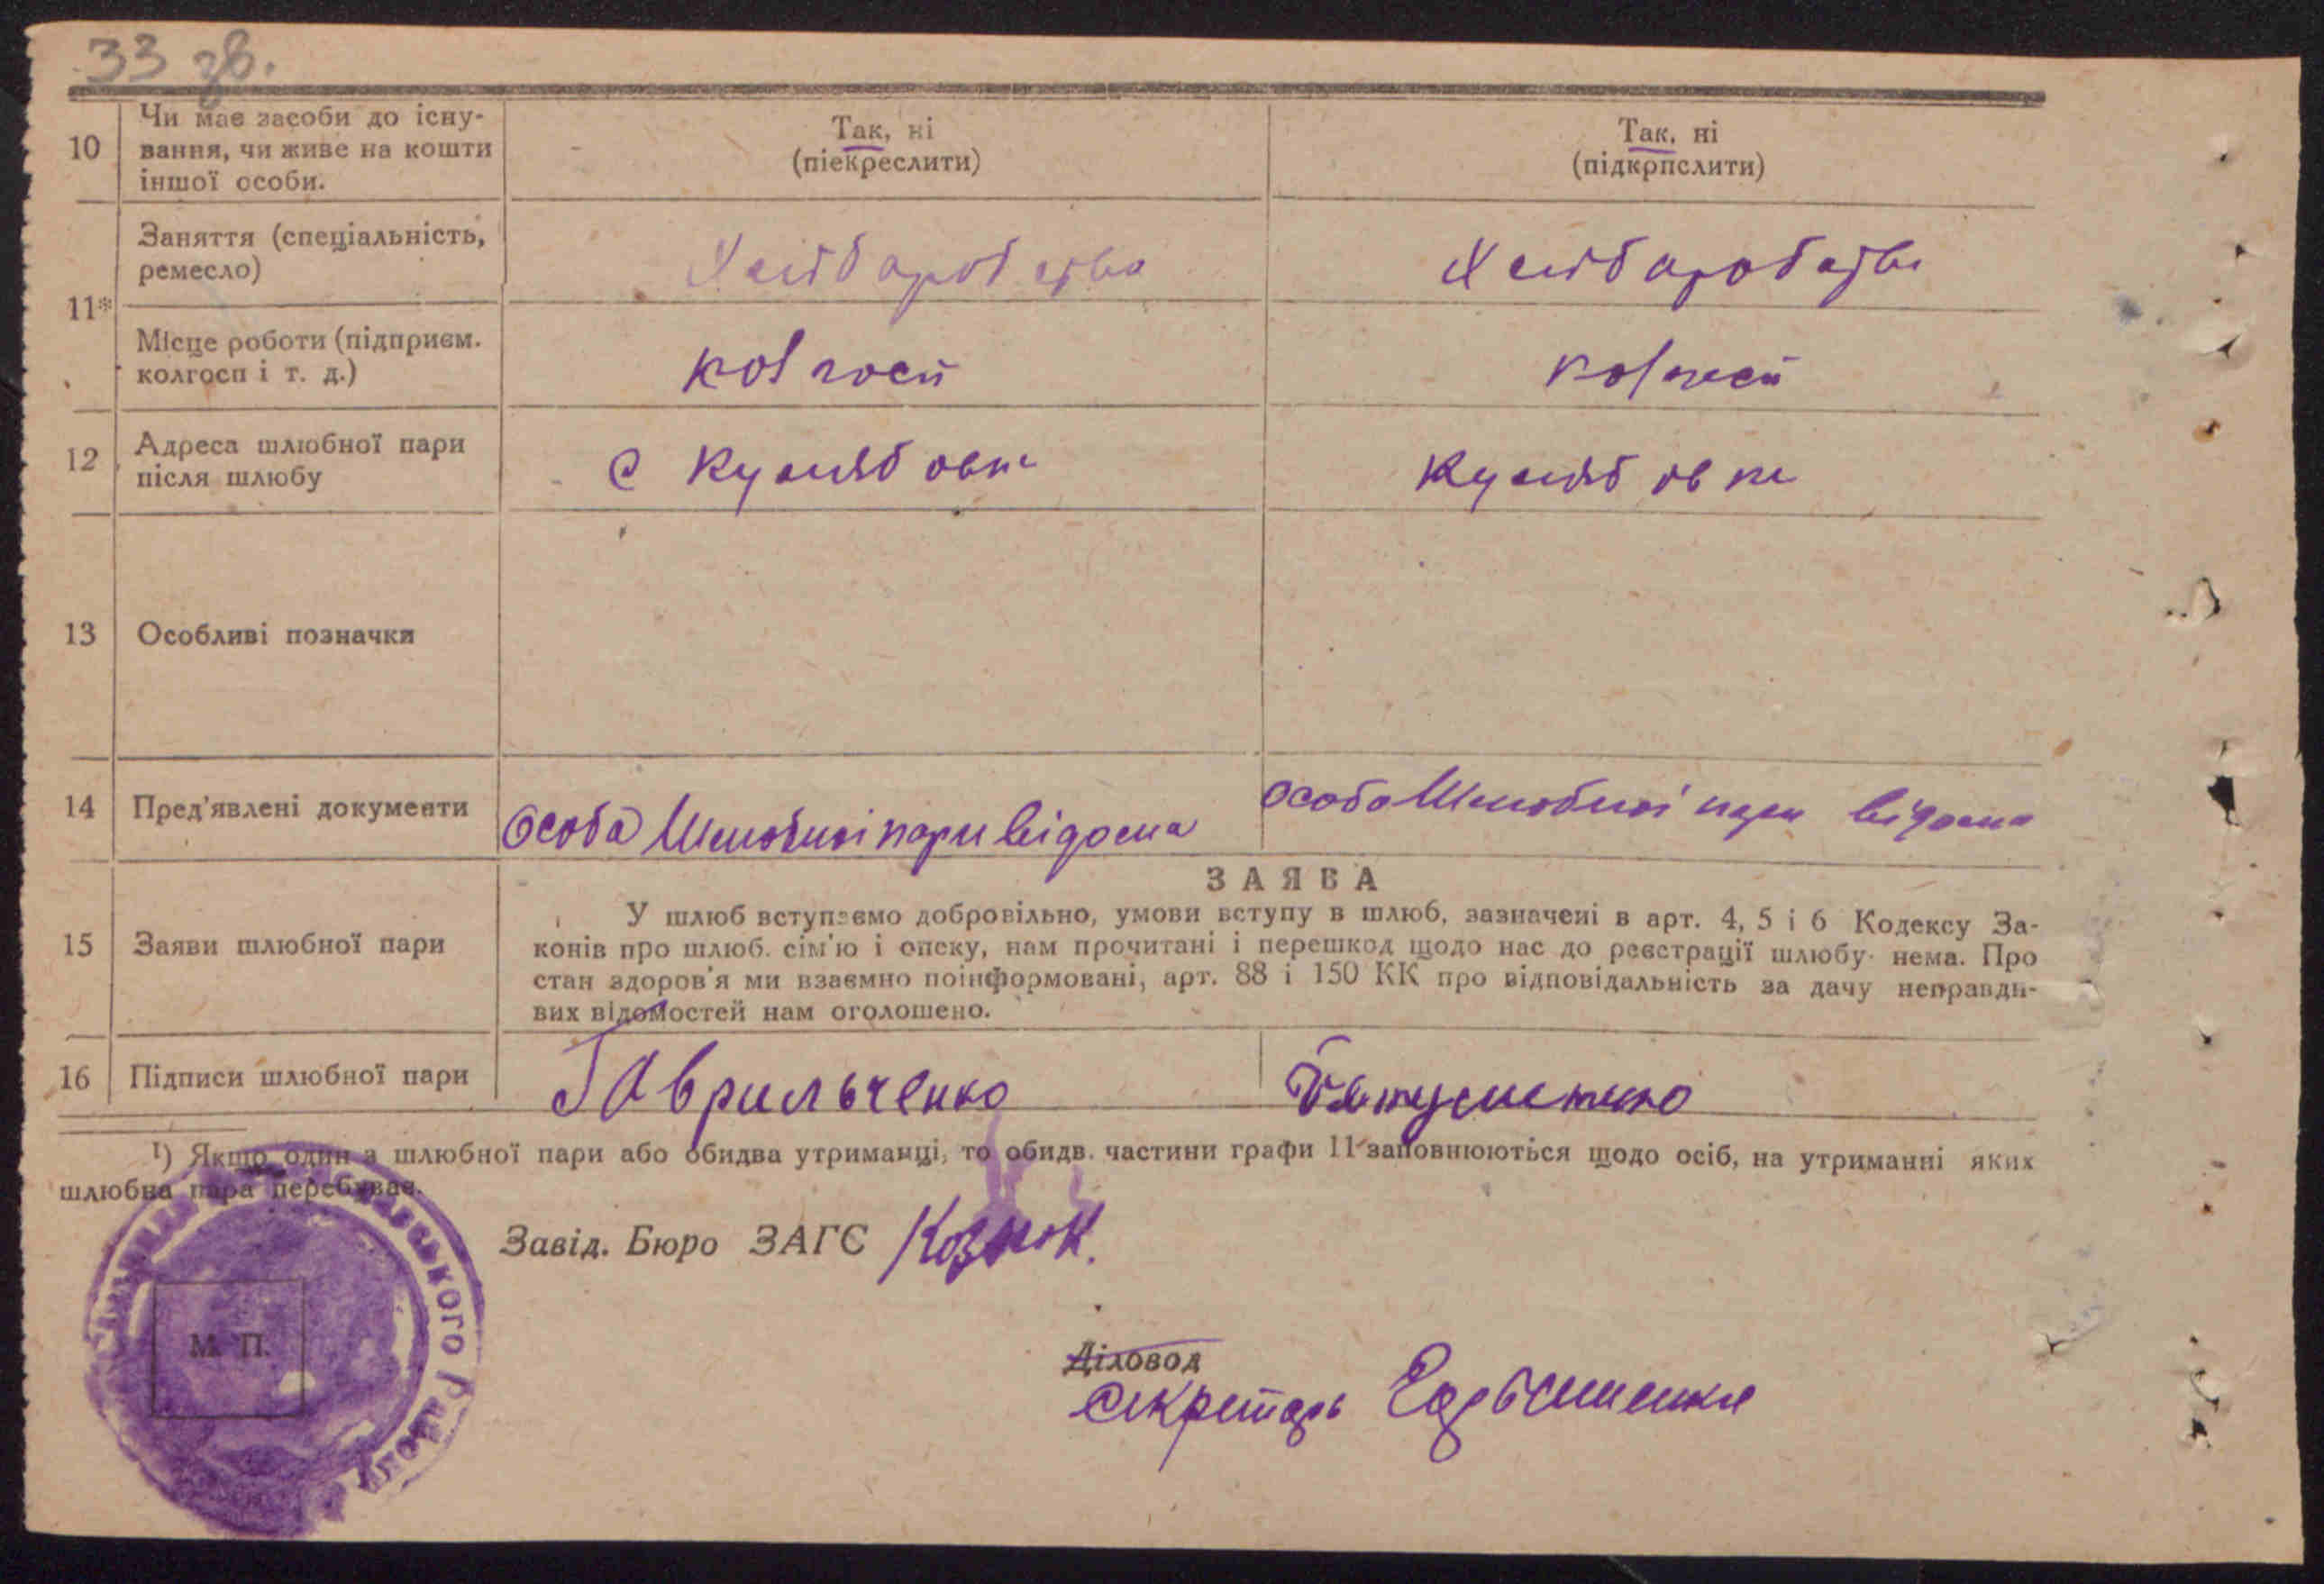 33 зв.
10
Чи має засоби до існу-
вання, чи живе на кошти
іншої особи.
Так, ні
(піекреслити)
Так, ні
(підкрпслити)
11*
Заняття (спеціальність,
ремесло)
Хлібаробство
Хлібаробство
Місце роботи (підприєм.
колгосп і т. д.)
колгосп
колгосп
12
Адреса шлюбної пари
після шлюбу
с
13
Особливі позначки
14
Пред'явлені документи
Особа Шлюбної пари відома
Особа Шлюбної пари відома
15
Заяви шлюбної пари
ЗАЯВА
У шлюб вступаємо добровільно, умови вступу в шлюб, зазначені в арт. 4, 5 і 6 Кодексу За-
конів про шлюб. сім'ю і опеку, нам прочитані і перешкод щодо нас до реєстрації шлюбу нема. Про
стан здоров'я ми взаємно поінформовані, арт. 88 і 150 КК про відповідальність за дачу неправди-
вих відомостей нам оголошено.
16
Підписи шлюбної пари
Гаврильченко
¹) Якщо один з шлюбної пари або обидва утриманці, то обидв. частини графи 11 заповнюються щодо осіб, на утриманні яких
шлюбна пара перебуває.
Завід. Бюро ЗАГС
М. П.
Діловод
Секретарь